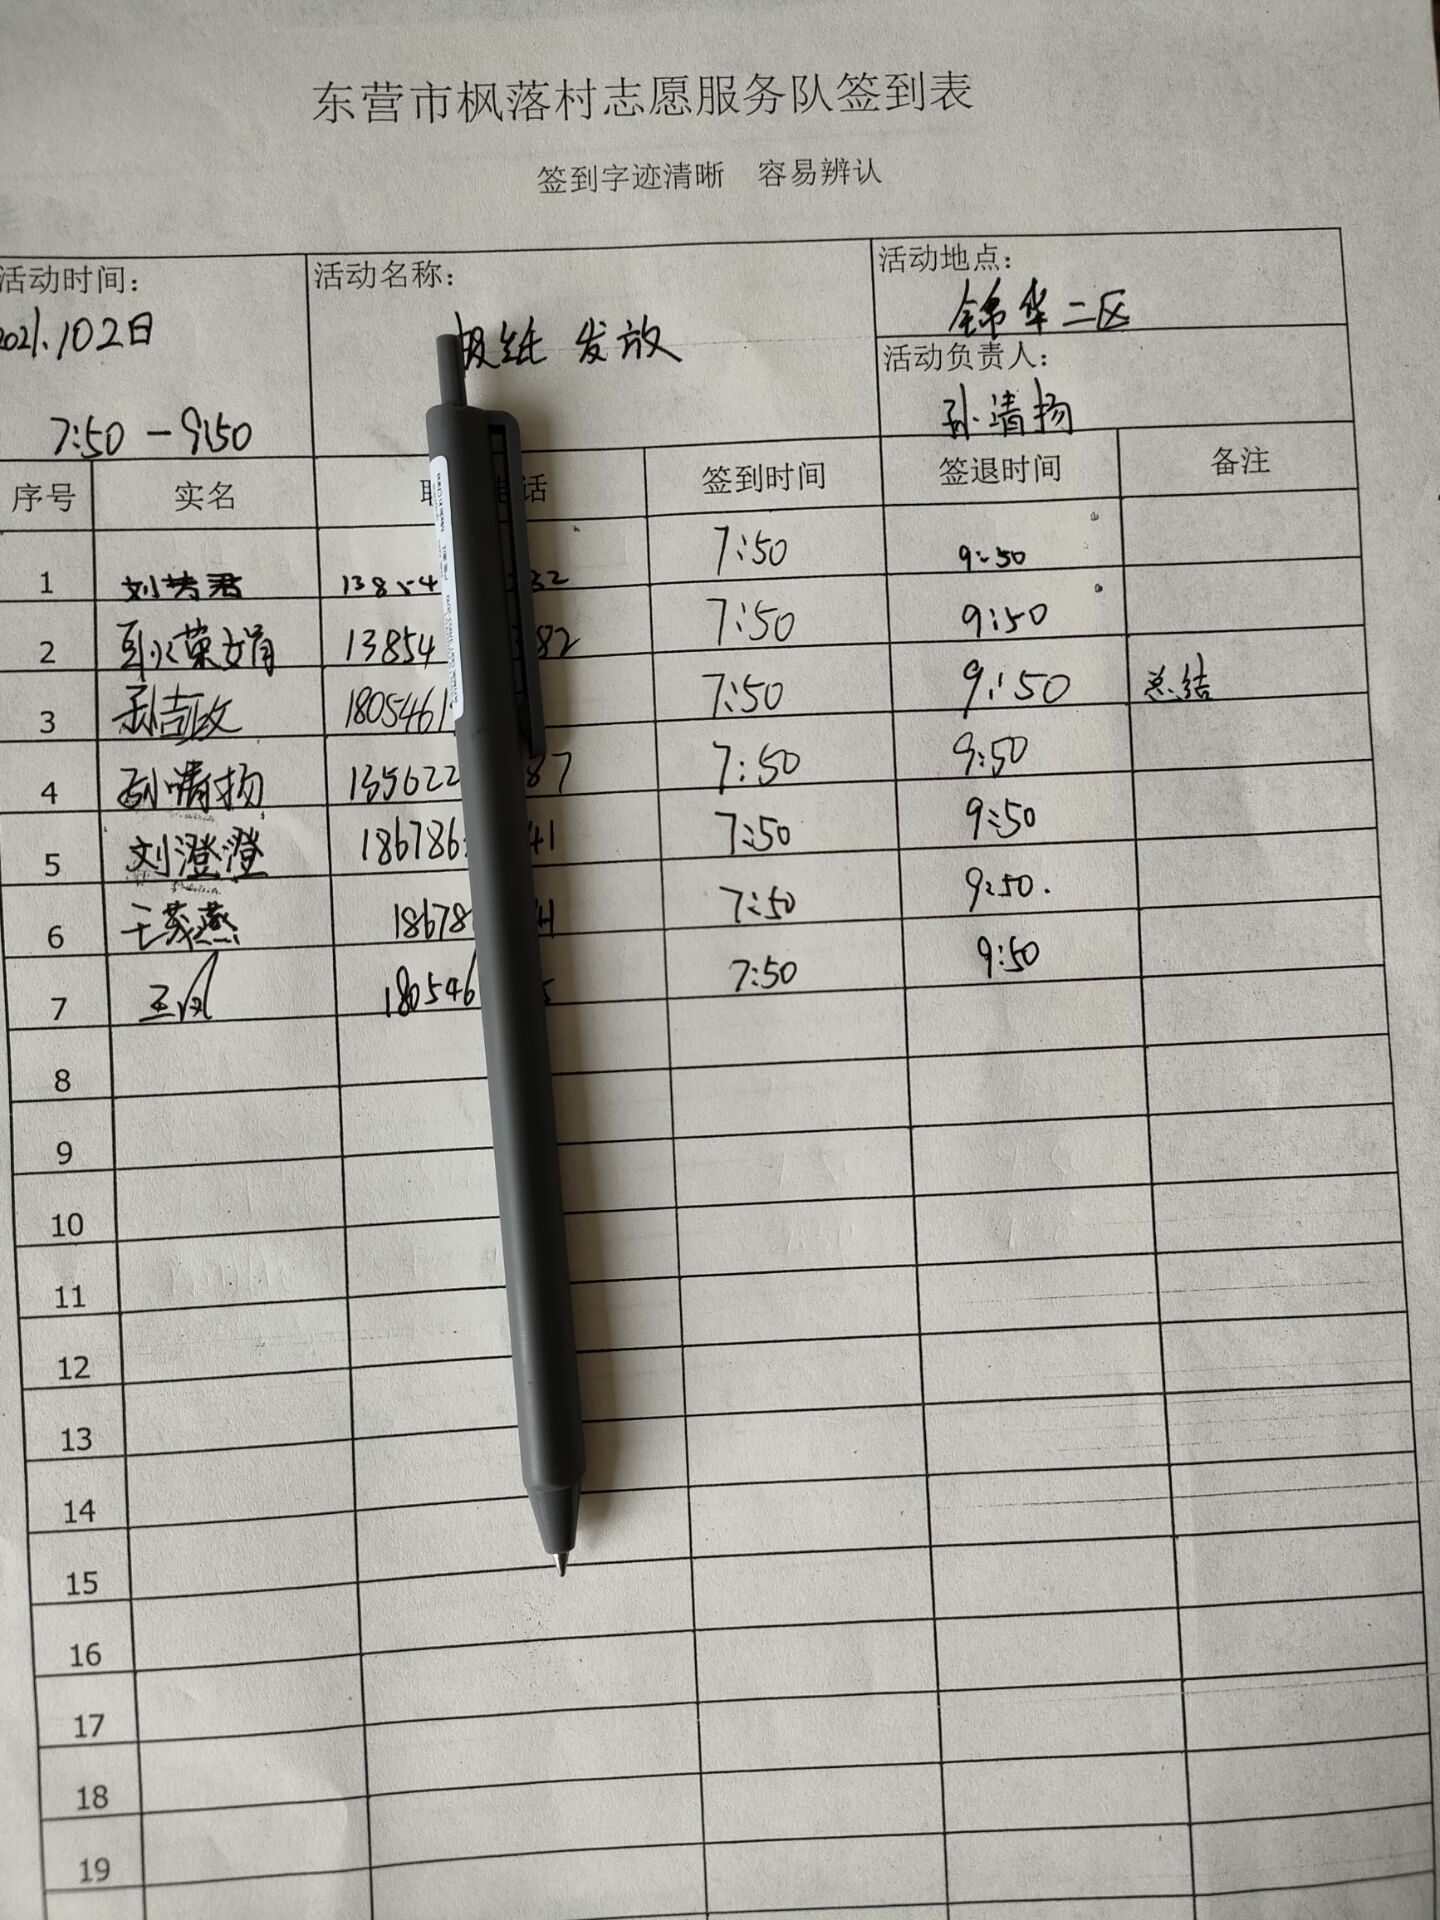 东营市枫落村志愿服务队签到表
签到字迹清晰 容易辨认
活动时间: 活动名称: 活动地点:
2021.102日 报纸 发放 锦华二区
活动负责人:
7:50 - 9:50 孙清扬
序号 实名 话 签到时间 签退时间 备注
1 7:50 9:50
2 荣娟 13854 82 7:50 9:50
3 孙吉政 1805461 7:50 9:50 总结
4 孙晴扬 135622 87 7:50 9:50
5 刘澄澄 186786 41 7:50 9:50
6 王茂燕 18678 41 7:50 9:50.
7 王凤 180546 7:50 9:50
8
9
10
11
12
13
14
15
16
17
18
19